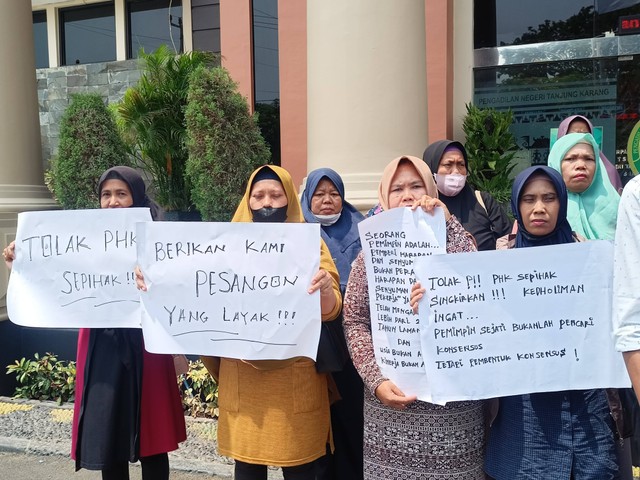 PENGADILAN NEGERI TANJUNG KARANG
TOLAK PHK
SEPIHAK !!!
BERIKAN KAMI
PESANGON
YANG LAYAK !!!
SEORANG
PEMIMPIN ADALAH...
PEMBERI HARAPAN
DAN SENYUM
BUKAN
HARAPAN
SENYUMAN
PEKERJA
TELAH
LEBIH DARI
TAHUN
DAN
USIA BUKAN
KINERJA BUKAN
TOLAK P!! PHK SEPIHAK
SINGKIRKAN !!! KEDHOLIMAN
INGAT...
PEMIMPIN SEJATI BUKANLAH PENCARI
KONSENSUS
TETAPI PEMBENTUK KONSENSUS !